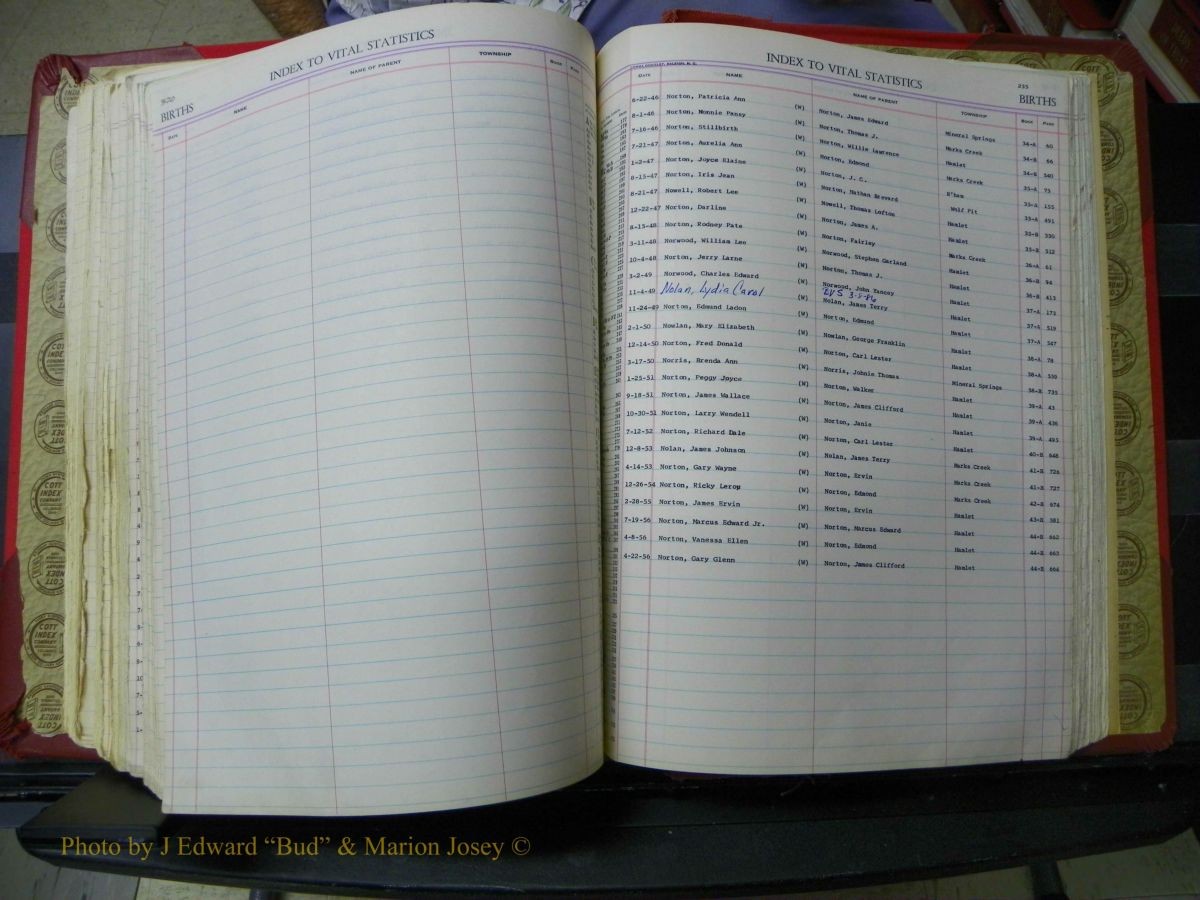 INDEX TO VITAL STATISTICS
BIRTHS
DATE NAME NAME OF PARENT TOWNSHIP BOOK PAGE
INDEX TO VITAL STATISTICS 235
BIRTHS
DATE NAME NAME OF PARENT TOWNSHIP BOOK PAGE
6-22-46 Norton, Patricia Ann (W) Norton, James Edward Mineral Springs 34-A 60
8-1-46 Norton, Monnie Pansy (W) Norton, Thomas J. Marks Creek 34-B 66
7-16-46 Norton, Stillbirth (W) Norton, Willie Lawrence Hamlet 34-B 540
7-21-47 Norton, Aurelia Ann (W) Norton, Edmond Marks Creek 35-A 73
1-2-47 Norton, Joyce Elaine (W) Norton, J. C. R'ham 35-A 155
8-15-47 Norton, Iris Jean (W) Norton, Nathan Brevard Wolf Pit 35-A 491
8-21-47 Nowell, Robert Lee (W) Nowell, Thomas Lofton Hamlet 35-B 330
12-22-47 Norton, Darline (W) Norton, James A. Hamlet 35-B 512
8-15-48 Norton, Rodney Pate (W) Norton, Fairley Marks Creek 36-A 61
3-11-48 Norwood, William Lee (W) Norwood, Stephen Garland Hamlet 36-B 94
10-4-48 Norton, Jerry Larne (W) Norton, Thomas J. Hamlet 36-B 413
3-2-49 Norwood, Charles Edward (W) Norwood, John Yancey Hamlet 37-A 173
11-4-49 Nolan, Lydia Carol LVS 3-5-86 (W) Nolan, James Terry Hamlet 37-A 519
11-24-49 Norton, Edmund Ladon (W) Norton, Edmund Hamlet 37-A 547
2-1-50 Nowlan, Mary Elizabeth (W) Nowlan, George Franklin Hamlet 38-A 78
12-14-50 Norton, Fred Donald (W) Norton, Carl Lester Hamlet 38-A 530
3-17-50 Norris, Brenda Ann (W) Norris, Johnie Thomas Mineral Springs 38-B 735
1-25-51 Norton, Peggy Joyce (W) Norton, Walker Hamlet 39-A 43
9-18-51 Norton, James Wallace (W) Norton, James Clifford Hamlet 39-A 436
10-30-51 Norton, Larry Wendell (W) Norton, Janie Hamlet 39-A 495
7-12-52 Norton, Richard Dale (W) Norton, Carl Lester Hamlet 40-B 648
12-8-53 Nolan, James Johnson (W) Nolan, James Terry Marks Creek 41-B 726
4-14-53 Norton, Gary Wayne (W) Norton, Ervin Marks Creek 41-B 727
12-26-54 Norton, Ricky Leroy (W) Norton, Edmond Marks Creek 42-B 674
2-28-55 Norton, James Ervin (W) Norton, Ervin Hamlet 43-B 381
7-19-56 Norton, Marcus Edward Jr. (W) Norton, Marcus Edward Hamlet 44-B 662
4-8-56 Norton, Vanessa Ellen (W) Norton, Edmond Hamlet 44-B 663
4-22-56 Norton, Gary Glenn (W) Norton, James Clifford Hamlet 44-B 664
COTT INDEX COMPANY
Photo by J Edward “Bud” & Marion Josey ©